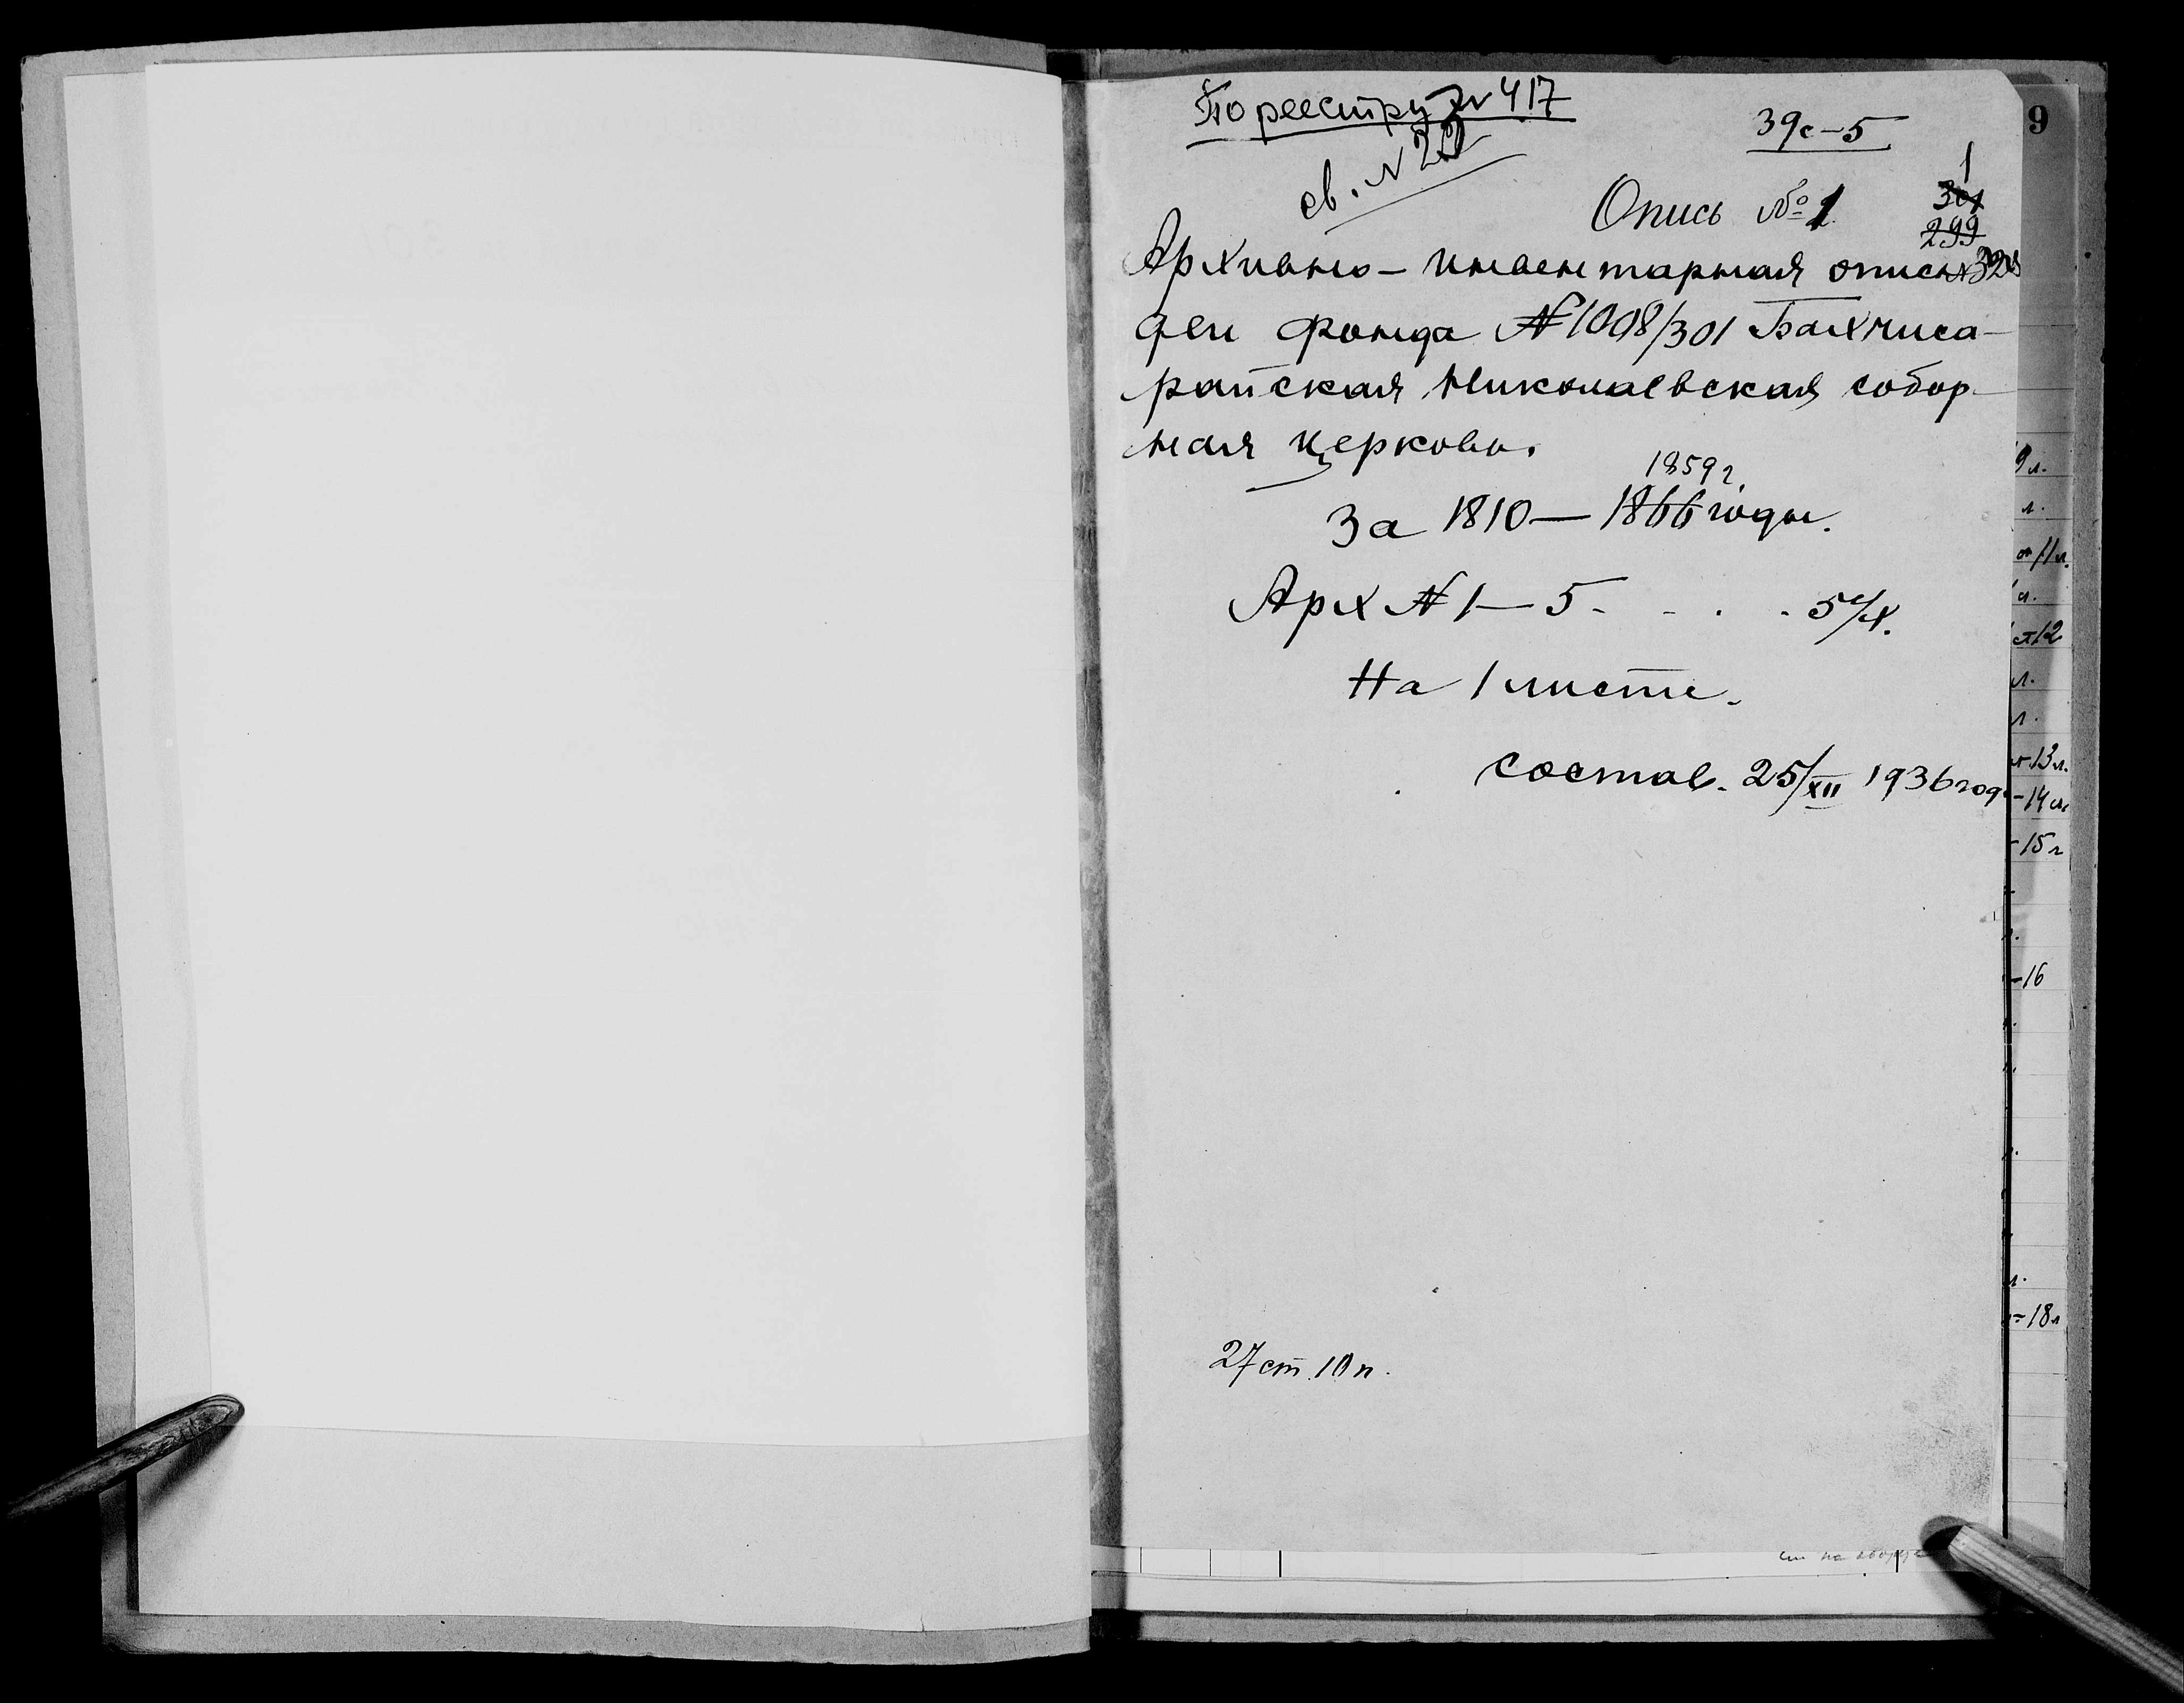 По реестру № 417
39с-5
св. № 22
1
Опись № 1
301
299
Архивно-инвентарная опись № 323
дел фонда № 1008/301 Бахчиса-
райская Николаевская собор-
ная церковь.
1859 г.
За 1810 — 1866 годы.
Арх № 1 — 5 - - . . 5
На 1 листе.
состав. 25/XII 1936 год
27 ст. 10 п.
9
9 л.
л.
11 л.
л.
12
л.
л.
13 л.
-14 л.
-15 л
-16
л.
-18 л
см на обороте